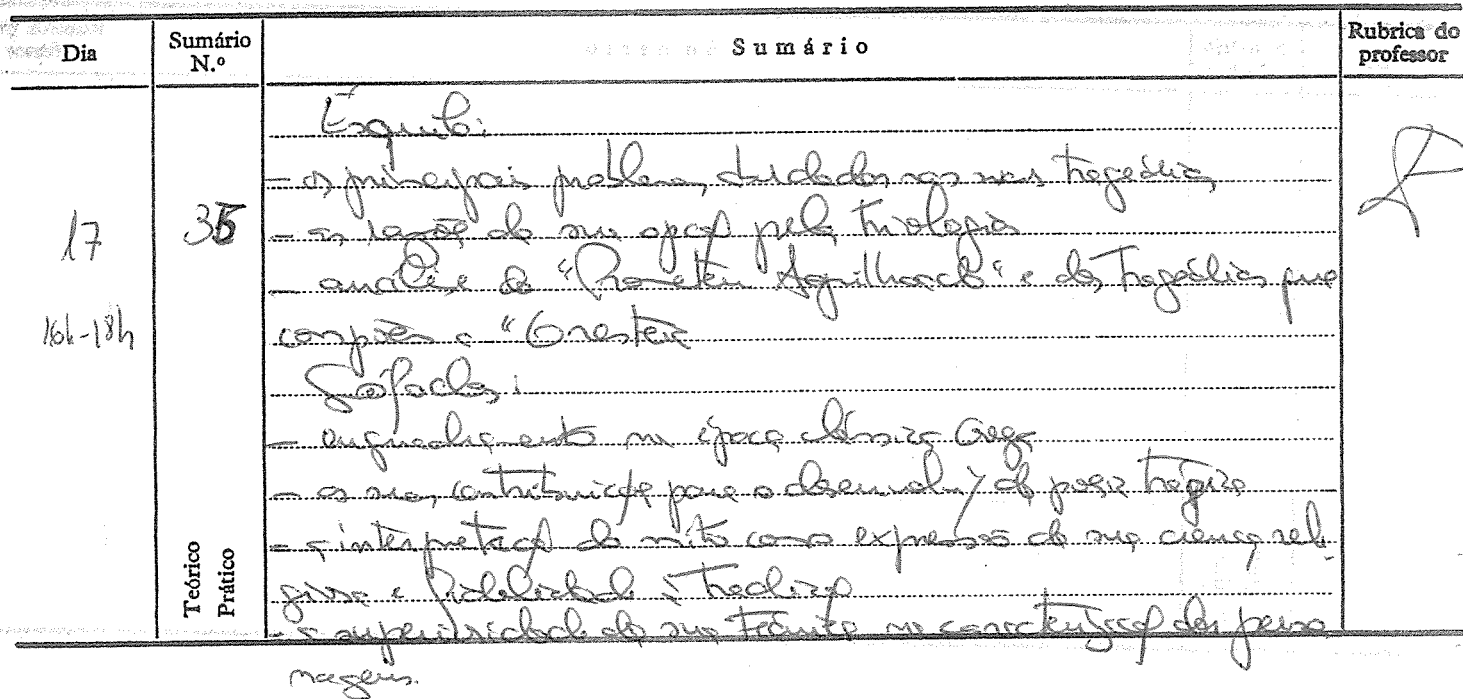 Dia Sumário N.º Sumário Rubrica do professor
Ésquilo:
- os principais problemas nas suas tragédias
17 35 - as razões da sua opção pela triologia
- análise de "Prometeu Agrilhoado" e das tragédias que
16h-18h compõem a "Oresteia
Sófocles:
- enquadramento na época clássica Grega
- as suas contribuições para o desenvolv/ da poesia trágica
- a interpretação do mito como expressão da sua crença reli-
giosa e fidelidade à tradição
- a superioridade da sua técnica na caracterização das perso
nagens.
Teórico
Prático